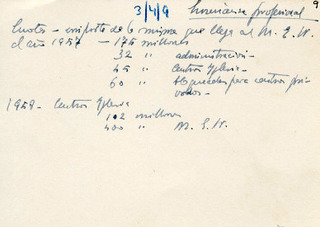 9
3/4/9 Enseñanza profesional
Cuotas - importe de la misma que llega al M. E. N.
el año 1957 - 175 millones
32 " administración -
45 " Centros Iglesia -
60 " bloqueados para centros pri-
vados -
1959 - Centros Iglesia
102 millones
400 " M. E. N.